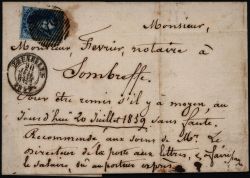 Monsieur,
Monsieur Février, notaire à
Sombreffe.
Pour être remis s'il y a moyen, au
jour d'heu 20 Juillet 1859 sans faute.
Recommandé aux soins de Mr. Le
Directeur de la poste aux lettres,
le salaire du au porteur exprès.
BRUXELLES